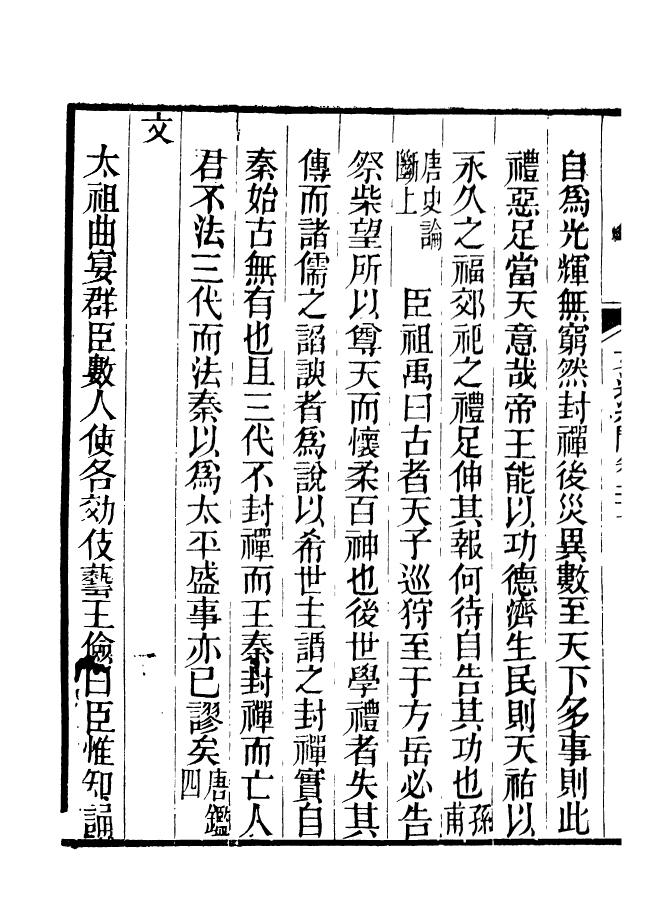 自爲光輝無窮然封禪後災異數至天下多事則此
禮惡足當天意哉帝王能以功德濟生民則天祐以
永久之福郊祀之禮足伸其報何待自告其功也孫甫
唐史論斷上　臣祖禹曰古者天子巡狩至于方岳必告
祭柴望所以尊天而懷柔百神也後世學禮者失其
傳而諸儒之諂諛者爲說以希世主謂之封禪實自
秦始古無有也且三代不封禪而王秦封禪而亡人
君不法三代而法秦以爲太平盛事亦已謬矣唐鑑四
文
太祖曲宴群臣數人使各効伎藝王儉曰臣惟知誦